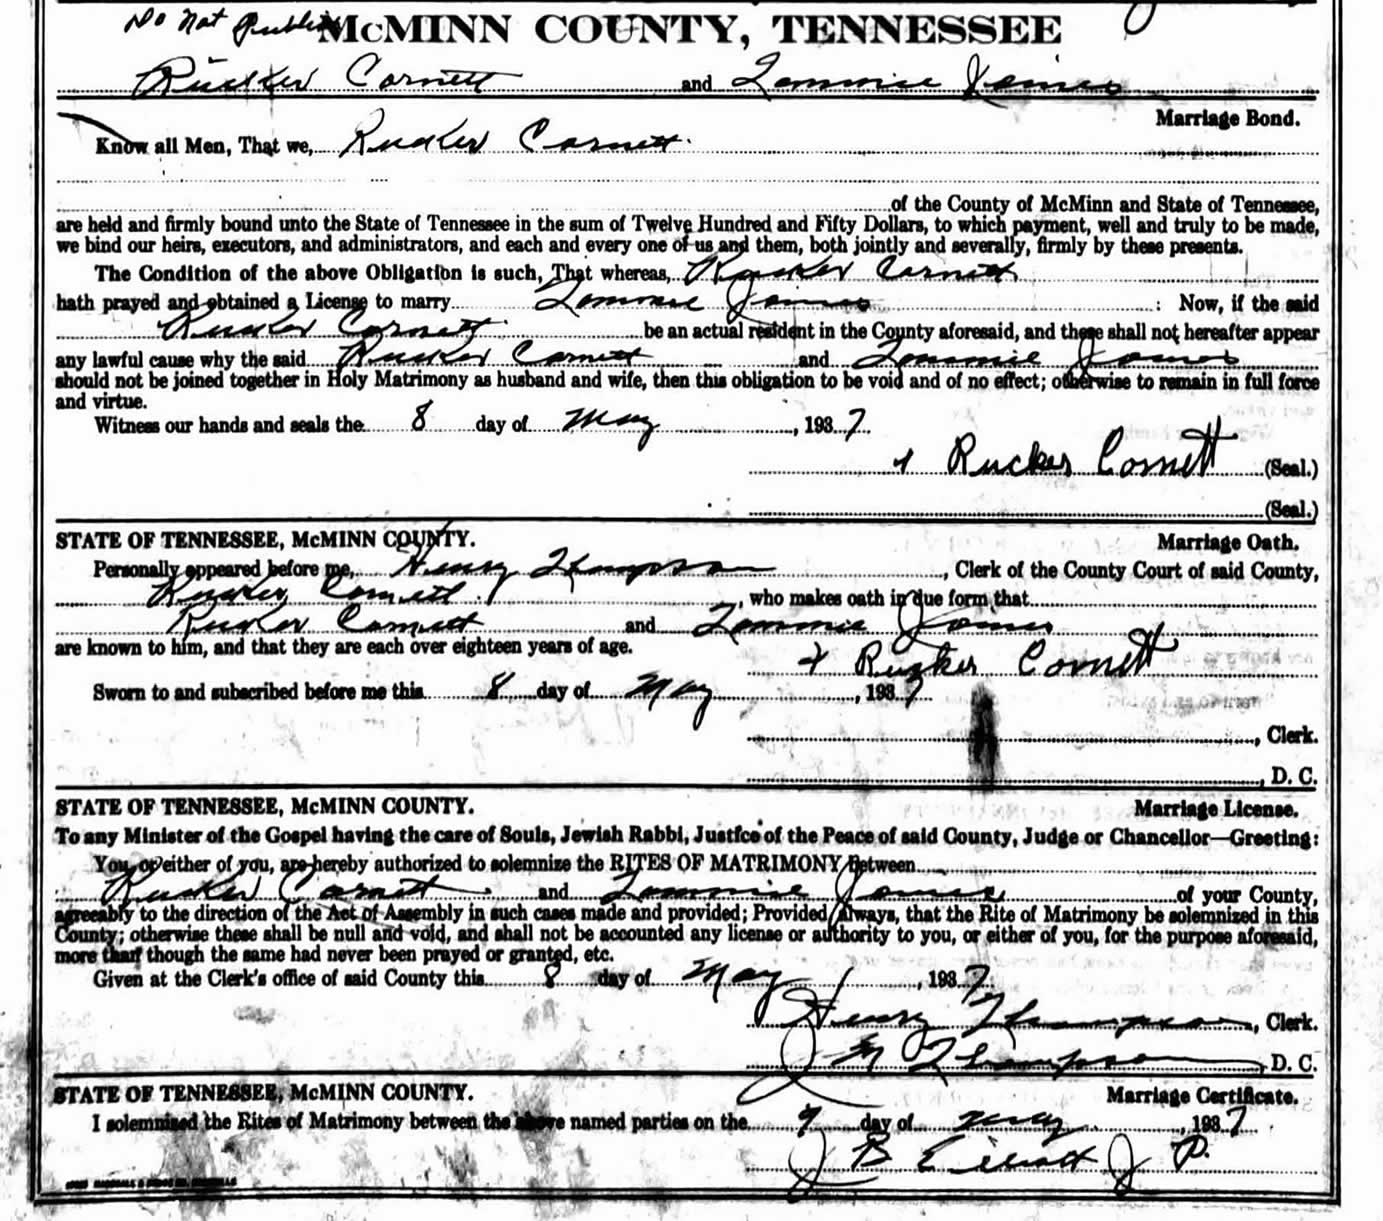 Do Not Publish McMINN COUNTY, TENNESSEE
Rucker Cornett and Tommie Jones
Marriage Bond.
Know all Men, That we, Rucker Cornett
of the County of McMinn and State of Tennessee,
are held and firmly bound unto the State of Tennessee in the sum of Twelve Hundred and Fifty Dollars, to which payment, well and truly to be made,
we bind our heirs, executors, and administrators, and each and every one of us and them, both jointly and severally, firmly by these presents.
The Condition of the above Obligation is such, That whereas, Rucker Cornett
hath prayed and obtained a License to marry Tommie Jones : Now, if the said
Rucker Cornett be an actual resident in the County aforesaid, and there shall not hereafter appear
any lawful cause why the said Rucker Cornett and Tommie Jones
should not be joined together in Holy Matrimony as husband and wife, then this obligation to be void and of no effect; otherwise to remain in full force
and virtue.
Witness our hands and seals the 8 day of May, 1937.
Rucker Cornett (Seal.)
(Seal.)
STATE OF TENNESSEE, McMINN COUNTY. Marriage Oath.
Personally appeared before me, Henry Thompson, Clerk of the County Court of said County,
Rucker Cornett, who makes oath in due form that
Rucker Cornett and Tommie Jones
are known to him, and that they are each over eighteen years of age.
Rucker Cornett
Sworn to and subscribed before me this 8 day of May, 1937
, Clerk.
, D. C.
STATE OF TENNESSEE, McMINN COUNTY. Marriage License.
To any Minister of the Gospel having the care of Souls, Jewish Rabbi, Justice of the Peace of said County, Judge or Chancellor—Greeting:
You, or either of you, are hereby authorized to solemnize the RITES OF MATRIMONY Between
Rucker Cornett and Tommie Jones of your County,
agreeably to the direction of the Act of Assembly in such cases made and provided; Provided Always, that the Rite of Matrimony be solemnized in this
County; otherwise these shall be null and void, and shall not be accounted any license or authority to you, or either of you, for the purpose aforesaid,
more than though the same had never been prayed or granted, etc.
Given at the Clerk's office of said County this 8 day of May, 1937
Henry Thompson, Clerk.
J M Thompson, D. C.
STATE OF TENNESSEE, McMINN COUNTY. Marriage Certificate.
I solemnized the Rites of Matrimony between the above named parties on the 9 day of May, 1937
J B Elliott J P.